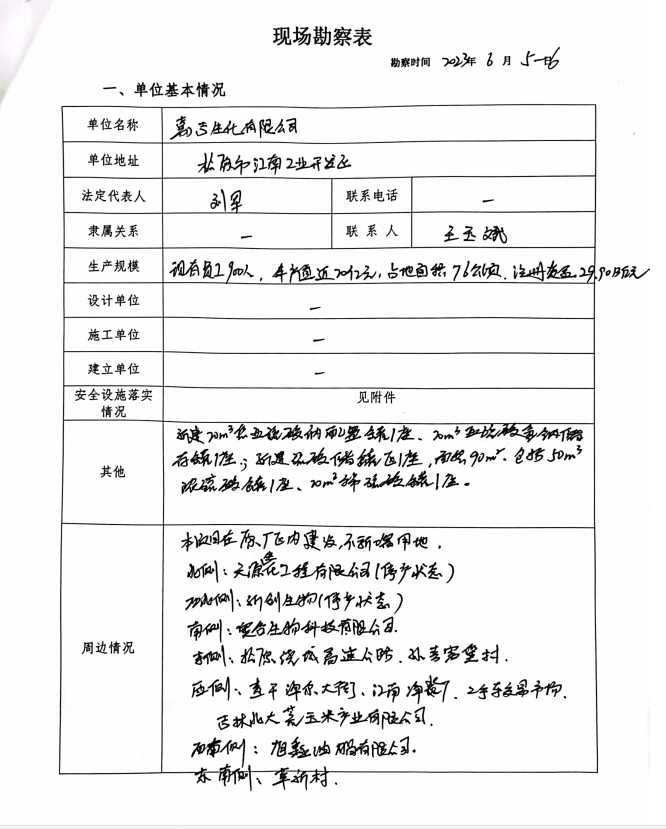 现场勘察表
勘察时间 2023年 6 月 5-6
一、单位基本情况
单位名称 嘉吉生化有限公司
单位地址 松原市江南工业开发区
法定代表人 刘军 联系电话 —
隶属关系 — 联系人 王玉斌
生产规模 现有员工900人，年产值近20亿元，占地面积76公顷，注册资金29,90万元
设计单位 —
施工单位 —
建立单位 —
安全设施落实 见附件
情况
其他
新建20m³ 亚硫酸钠配置罐1座、20m³亚硫酸氢钠储
存罐1座；新建硫酸储罐区1座，面积90m²，包括50m³
浓硫酸罐1座、20m³稀硫酸罐1座。
周边情况
本项目在原厂区内建设，不新增用地，
北侧：天源化工程有限公司(停产状态)
西北侧：新创生物(停产状态)
南侧：生物科技有限公司
东侧：松原绕城高速公路、孙喜窝堡村．
西侧：查干淖尔大街、江南净水厂、二手车交易市场，
吉林北大荒玉米产业有限公司．
西南侧：旭鑫油脂有限公司．
东南侧：革新村．